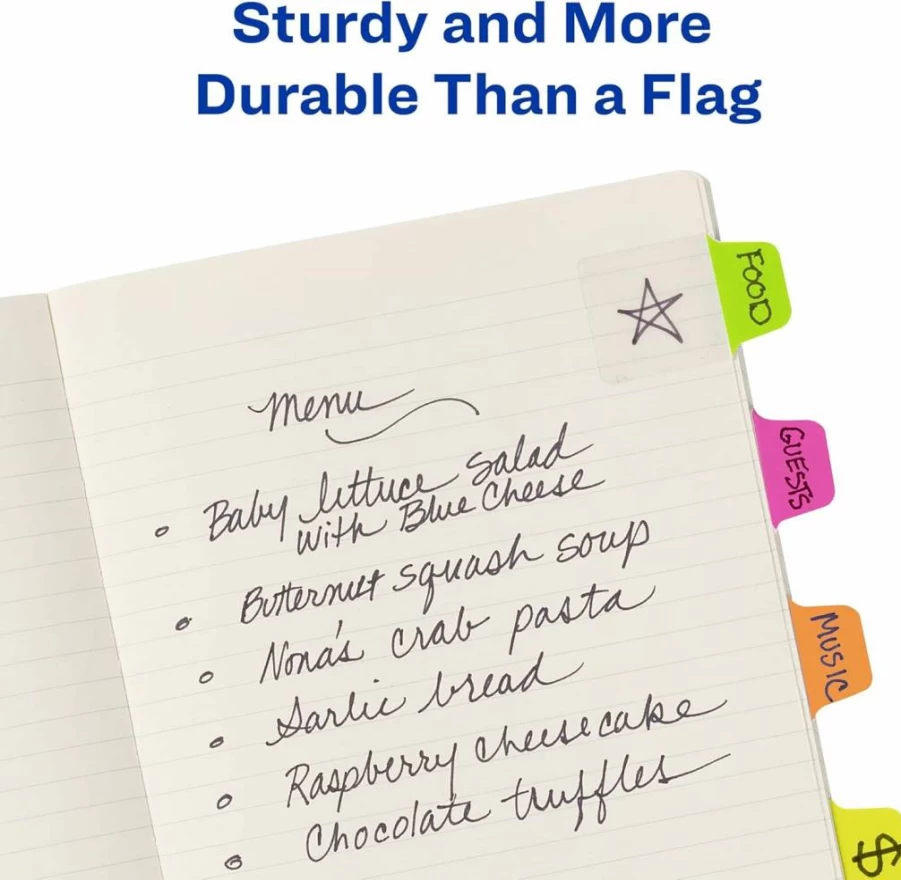 Sturdy and More
Durable Than a Flag
FOOD
Menu
Baby lettuce salad
with Blue Cheese
Butternut squash soup
Nona's crab pasta
Garlic bread
Raspberry cheesecake
Chocolate truffles
GUESTS
MUSIC
$